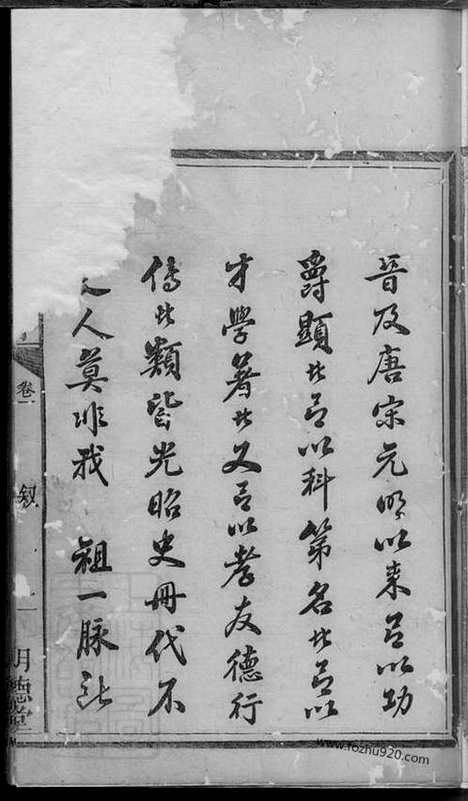 晉及唐宋元明以來有以功
爵顯者有以科第名者有以
才學著者又有以孝友德行
傳者類皆光昭史冊代不
人莫非我 祖一脉
卷一
叙
一
明德堂
www.fozhu920.com